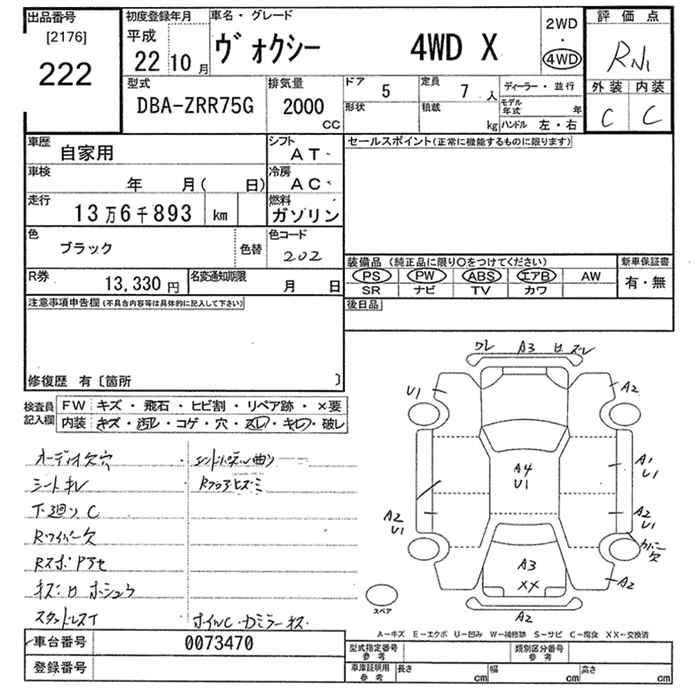 出品番号
[2176]
222
初度登録年月
平成
22 10月
車名・グレード
ヴォクシー 4WD X
2WD
・
4WD
評価点
R
外装 内装
C C
型式
DBA-ZRR75G
排気量
2000
cc
ドア 5
形状
定員 7 人
積載 kg
ディーラー・並行
モデル年式 年
ハンドル 左・右
車歴
自家用
シフト
AT
車検
年 月( 日)
冷房
AC
走行
13万6千893 km
燃料
ガソリン
色
ブラック
色替
色コード
202
R券
13,330 円
名変通知期限
月 日
注意事項申告欄(不具合内容等は具体的に記入して下さい)
修復歴 有〔箇所 〕
セールスポイント(正常に機能するものに限ります)
装備品(純正品に限り○をつけてください)
新車保証書
PS PW ABS エアB AW
SR ナビ TV カワ
有・無
後日品
検査員
記入欄
FW キズ・飛石・ヒビ割・リペア跡・×要
内装 キズ・汚レ・コゲ・穴・スレ・キレ・破レ
オーディオ欠穴
シートキレ
下廻りC
Rワイパー欠
スタッドレス
ワレ A3
ズレ
U1
A2
A4
U1
A1
U1
A2
U1
カバー欠
A3
XX
A2
A2
スペア
A-キズ E-エクボ U-凹み W-補修跡 S-サビ C-腐食 XX-交換済
車台番号 0073470
登録番号
型式指定番号
参考
類別区分番号
参考
車庫証明用
参考
長さ cm
幅 cm
高さ cm